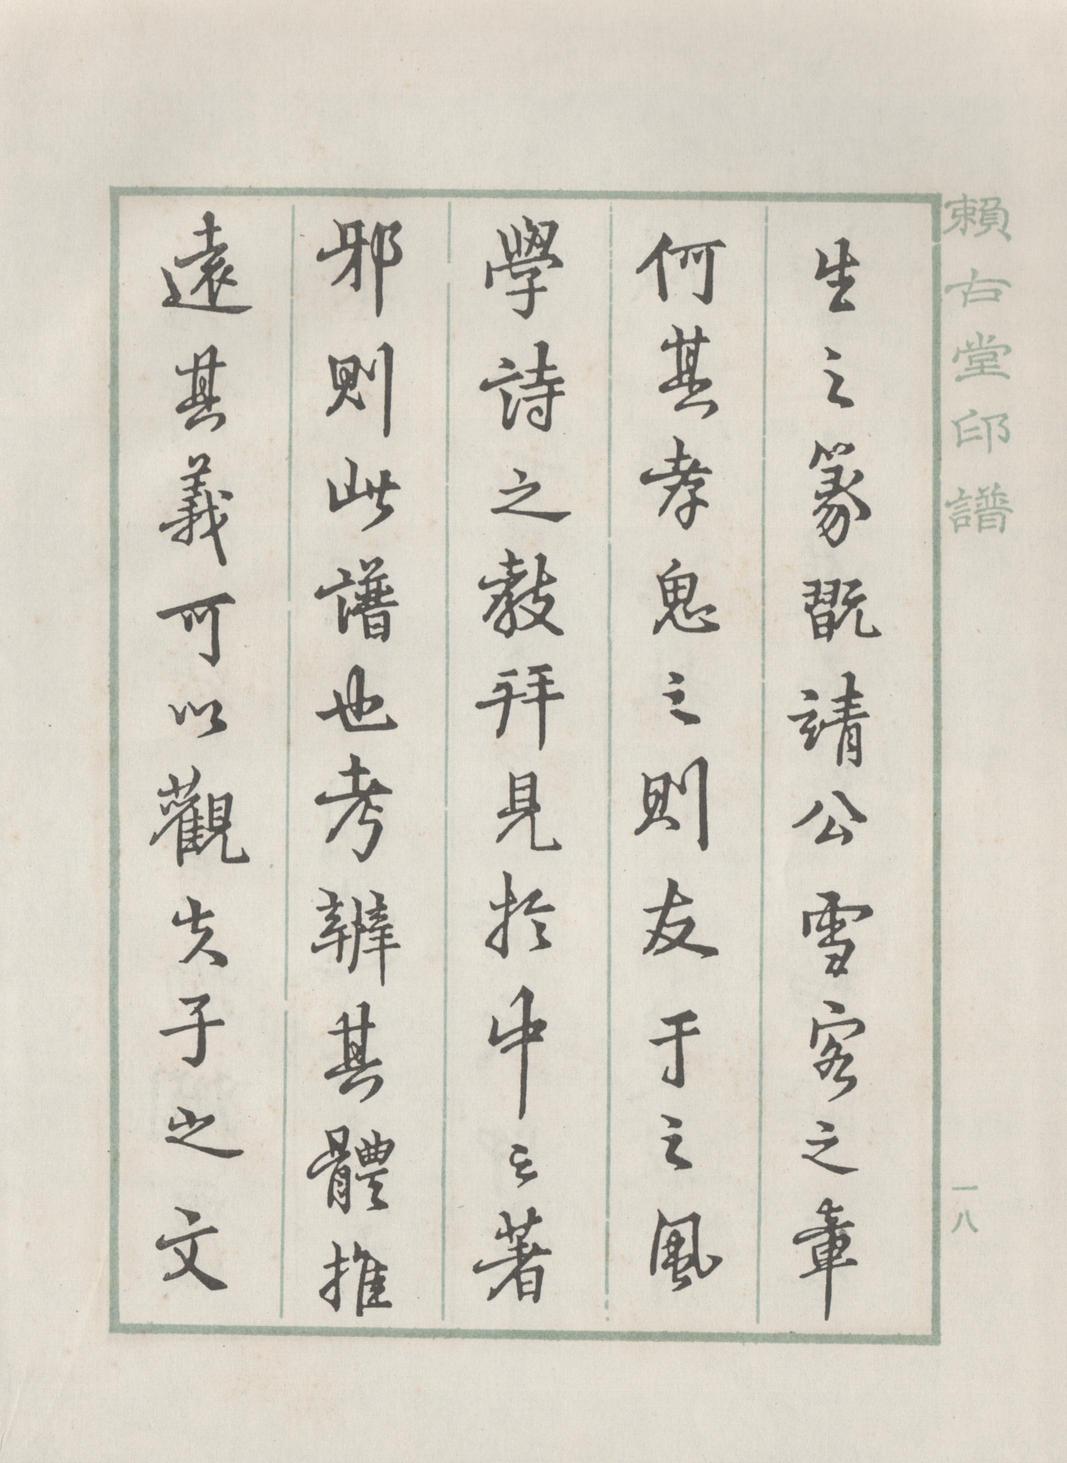 賴古堂印譜
生之篆翫靖公雪客之章
何其孝思之則友于之風
學詩之教拜見於中云著
邪則此譜也考辨其體推
遠其義可以觀夫子之文
一八